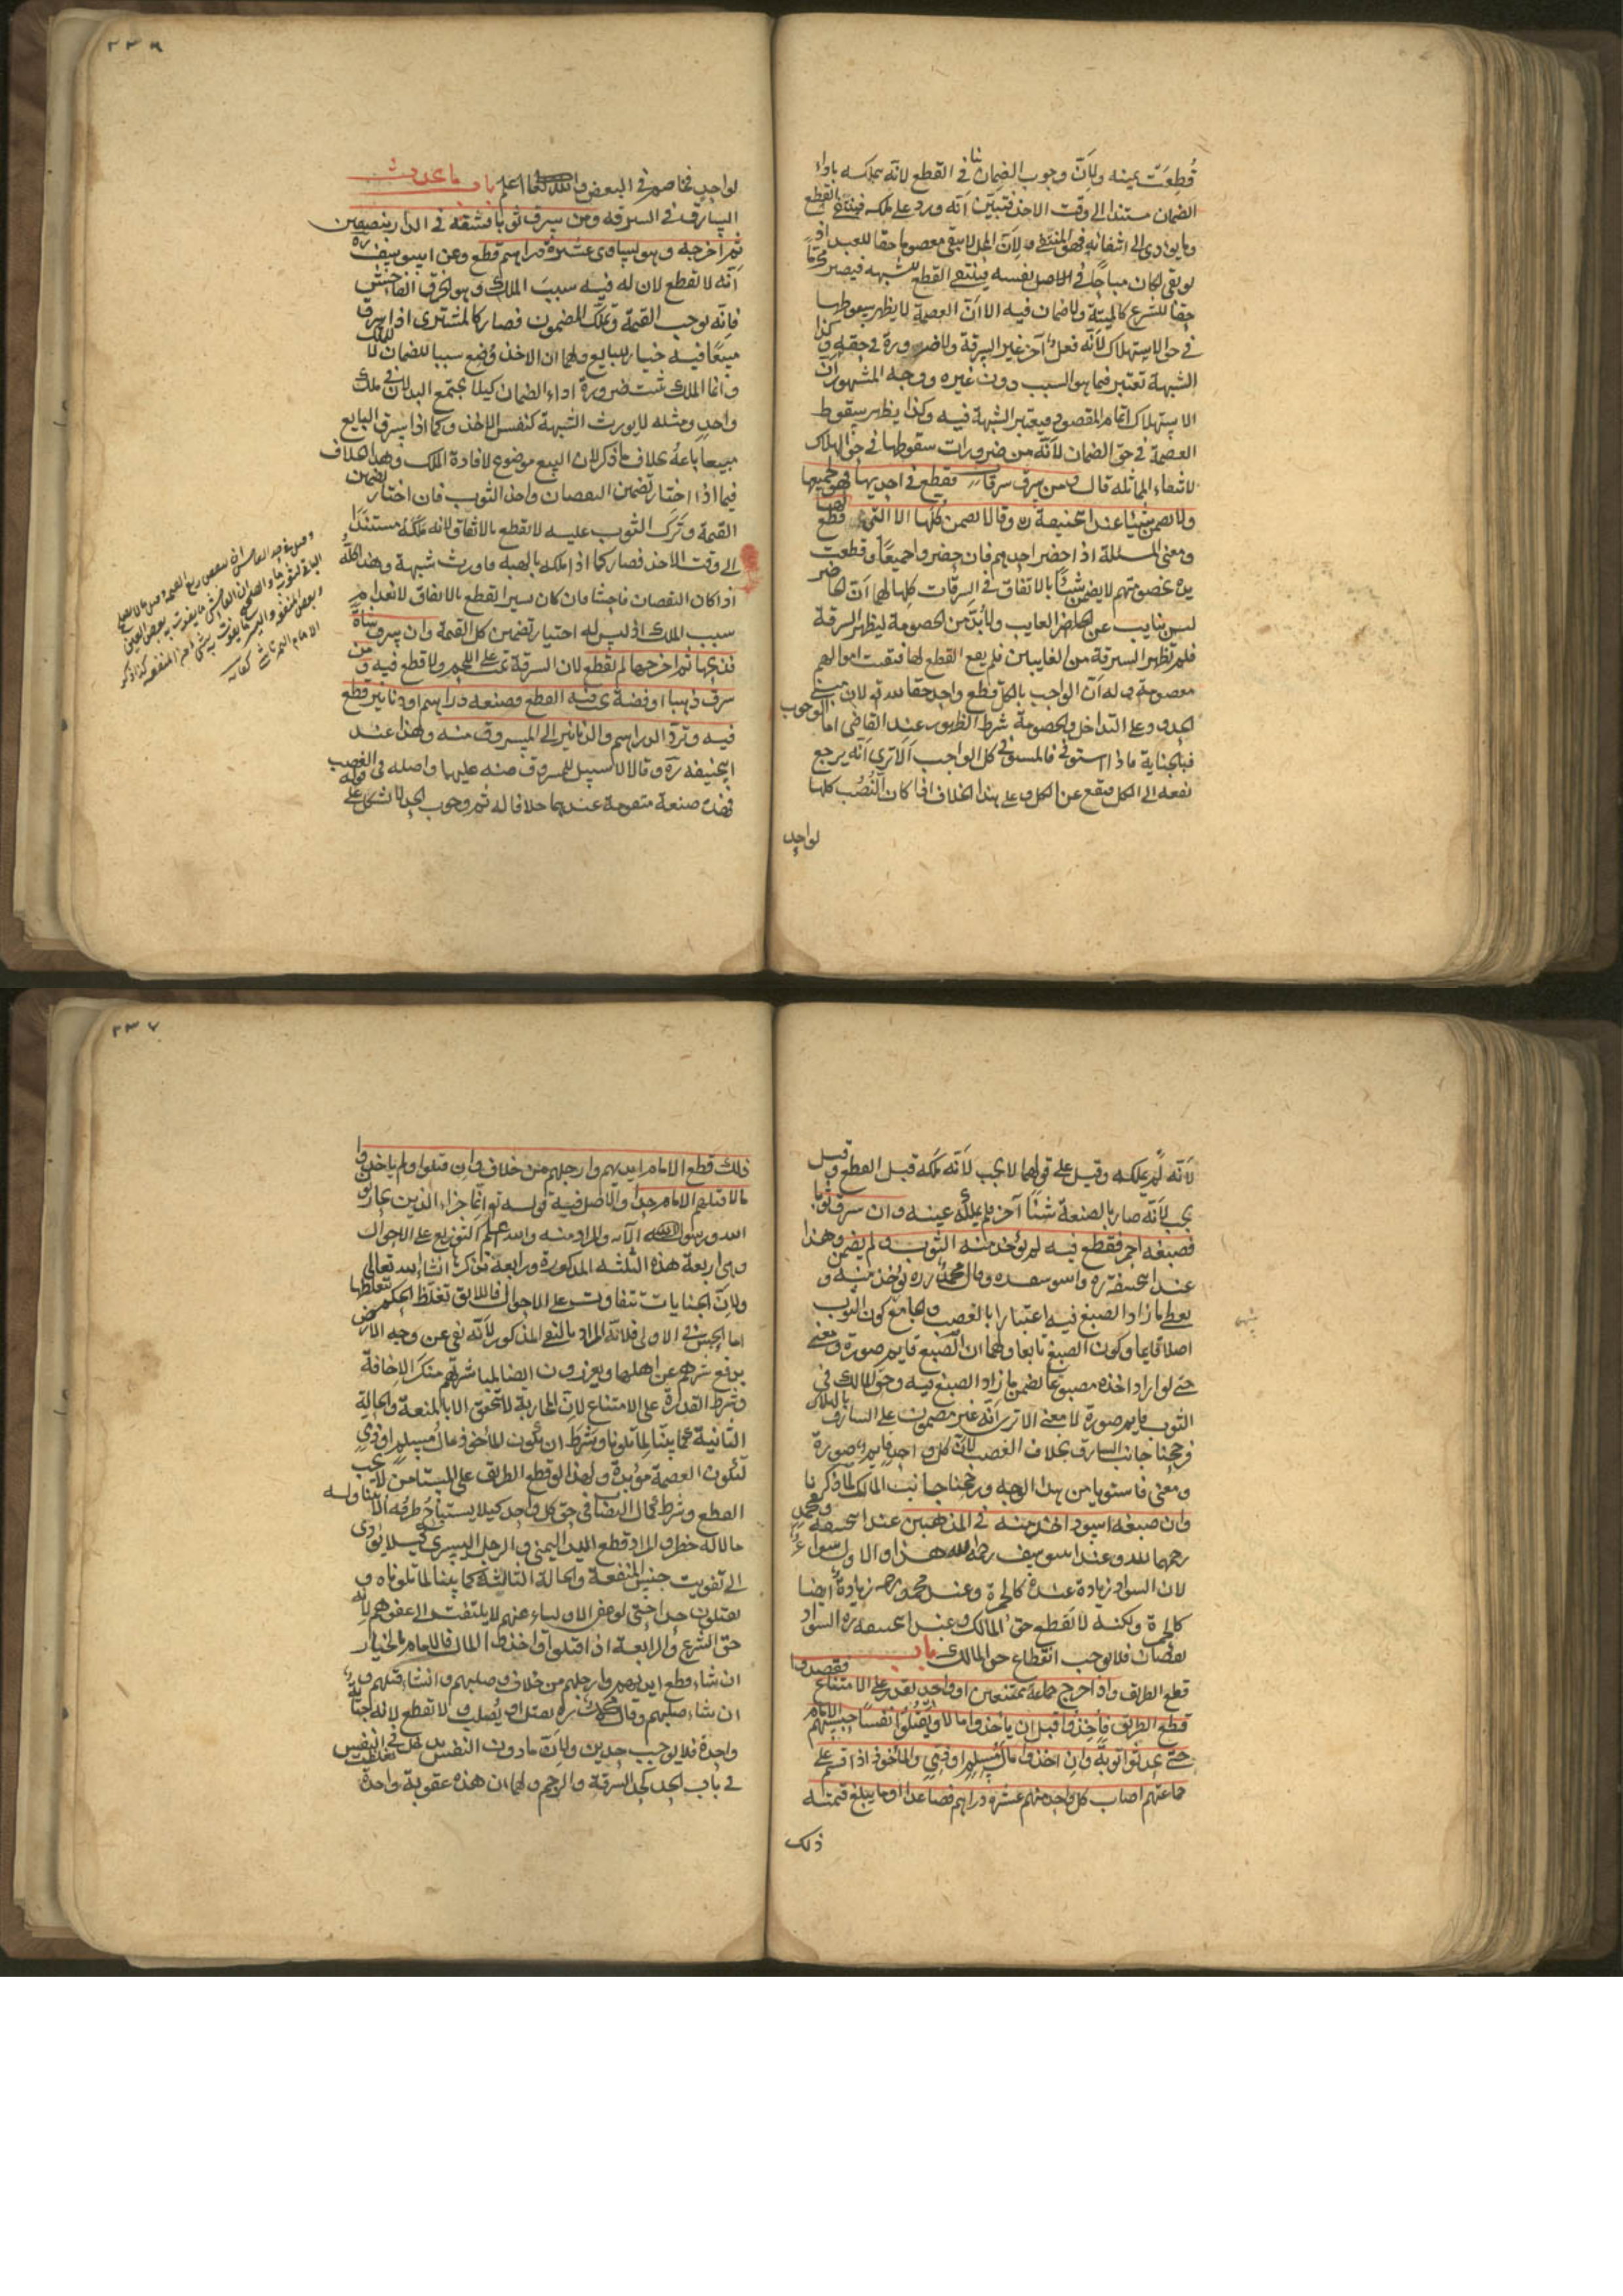 قُطِعَت يمينه ولان وجوب الضمان ينافي القطع لانه يتملكه باداء
الضمان مستندا الى وقت الاخذ فتبين انه ورد على ملكه فينتفي القطع
وما يؤدي الى انتفائه فهو المنتفي ولان المحل لا يبقى معصوما حقا للعبد اذ
لو بقي لكان مباحا في الاصل نفسه فينتفي القطع للشبهة فيصير محرما
حقا للشرع كالميتة ولا ضمان فيه الا ان العصمة لا يظهر سقوطها
في حق الاستهلاك لانه فعل آخر غير السرقة ولا ضرورة في حقه وكذا
الشبهة تعتبر فيما هو السبب دون غيره ووجه المشهور ان
الاستهلاك اتمام المقصود فيعتبر الشبهة فيه وكذا يظهر سقوط
العصمة في حق الضمان لانه من ضرورات سقوطها في حق الهلاك
لانتفاء المماثلة قال ومن سرق سرقات فقطع في احديها فهو لجميعها
ولا يضمن شيئا عند ابي حنيفة ره وقالا يضمن كلها الا التي قطع لها
ومعنى المسئلة اذا حضر احدهم فان حضروا جميعا وقطعت
يده بخصومتهم لا يضمن شيئا بالاتفاق في السرقات كلها لهما ان الحاضر
ليس بنايب عن الغايب ولا بد من الخصومة ليظهر السرقة
فلم تظهر السرقة من الغايبين فلم يقع القطع لها فبقيت اموالهم
معصومة وله ان الواجب بالكل قطع واحد حقا لله تع لان مبنى
الحدود على التداخل والخصومة شرط الظهور عند القاضي اما الوجوب
فبالجناية فاذا استوفي فالمستوفى كل الواجب الا ترى انه يرجع
نفعه الى الكل فيقع عن الكل وعلى هذا الخلاف اذا كان النُصُب كلها
لواحد
٢٣٦
لواحد فخاصم في البعض والله تعالى اعلم باب ما يحدث
السارق في السرقة ومن سرق ثوبا فشقه في الدار بنصفين
ثم اخرجه وهو يساوي عشرة دراهم قطع وعن ابي يوسف ره
انه لا يقطع لان له فيه سبب الملك وهو الخرق الفاحش
فانه يوجب القيمة وتملك المضمون فصار كالمشتري اذا سرق
مبيعا فيه خيار للبايع ولهما ان الاخذ وُضع سببا للضمان لا للملك
وانما الملك يثبت ضرورة اداء الضمان كيلا يجتمع البدلان في ملك
واحد ومثله لا يورث الشبهة كنفس الاخذ وكما اذا سرق البايع
مبيعا باعه بخلاف ما ذكر لان البيع موضوع لافادة الملك وهذا الخلاف
فيما اذا اختار تضمين النقصان واخذ الثوب فان اختار تضمين
القيمة وترك الثوب عليه لا يقطع بالاتفاق لانه ملكه مستندا
الى وقت الاخذ فصار كما اذا ملكه بالهبة فاورث شبهة وهذا كله
اذا كان النقصان فاحشا فان كان يسيرا يقطع بالاتفاق لانعدام
سبب الملك اذ ليس له اختيار تضمين كل القيمة وان سرق شاة
فذبحها ثم اخرجها لم يقطع لان السرقة تمت على اللحم ولا قطع فيه ومن
سرق ذهبا او فضة يجب فيه القطع فصنعه دراهم او دنانير قطع
فيه وترد الدراهم والدنانير الى المسروق منه وهذا عند
ابي حنيفة ره وقالا لا سبيل للمسروق منه عليها واصله في الغصب
فهذه صنعة متقومة عندهما خلافا له ثم وجوب الحد لا يشكل على قوله
لانه لم يملكه وقيل على قولهما لا يجب لانه ملكه قبل القطع وقيل
يجب لانه صار بالصنعة شيئا آخر فلم يملك عينه وان سرق ثوبا
فصبغه احمر فقطع فيه لم يؤخذ منه الثوب ولم يضمن وهذا
عند ابي حنيفة ره وابي يوسف ره وقال محمد ره يؤخذ منه و
يعطى ما زاد الصبغ فيه اعتبارا بالغصب والجامع كون الثوب
اصلا قايما وكون الصبغ تابعا ولهما ان الصبغ قايم صورة ومعنى
حتى لو اراد اخذه مصبوغا يضمن ما زاد الصبغ فيه وحق المالك في
الثوب قايم صورة لا معنى الا ترى انه غير مضمون على السارق بالهلاك
فرجحنا جانب السارق بخلاف الغصب لان حق كل واحد قايم صورة
ومعنى فاستويا من هذا الوجه ورجحنا جانب المالك لما ذكرنا
وان صبغه اسود اخذ منه في المذهبين عند ابي حنيفة ومحمد
رحمهما الله وعند ابي يوسف رحمه الله هذا والاول سواء
لان السواد زيادة عنده كالحمرة وعند محمد رحمه زيادة ايضا
كالحمرة ولكنه لا يقطع حق المالك وعند ابي حنيفة ره السواد
نقصان فلا يوجب انقطاع حق المالك باب
قطع الطريق واذا خرج جماعة ممتنعين او واحد يقدر على الامتناع فقصدوا
قطع الطريق فاُخِذوا قبل ان ياخذوا مالا ويقتلوا نفسا حبسهم الامام
حتى يحدثوا توبة وان اخذوا مال مسلم او ذمي والماخوذ اذا قسم على
جماعتهم اصاب كل واحد منهم عشرة دراهم فصاعدا او ما يبلغ قيمته
ذلك
٢٣٧
ذلك قطع الامام ايديهم وارجلهم من خلاف وان قتلوا ولم ياخذوا
مالا قتلهم الامام حدا والاصل فيه قوله تع انما جزاء الذين يحاربون
الله ورسوله الآية والمراد منه والله اعلم التوزيع على الاحوال
وهي اربعة هذه الثلثة المذكورة ورابعة نذكرها انشاء الله تعالى
ولان الجنايات تتفاوت على الاحوال فاللايق تغلظ الحكم بتغلظها
اما الحبس في الاولى فلانه المراد بالنفي المذكور لانه نفي عن وجه الارض
بدفع شرهم عن اهلها ويعزرون ايضا لمباشرتهم منكر الاخافة
وشرط القدرة على الامتناع لان المحاربة لا تتحقق الا بالمنعة والحالة
الثانية كما بينا لما تلونا وشرط ان يكون الماخوذ مال مسلم او ذمي
لتكون العصمة مؤبدة ولهذا لو قطع الطريق على المستامن لا يجب
القطع وشرط كمال النصاب في حق كل واحد كيلا يستباح طرفه الا بتناوله
ما لا له خطر والمراد قطع اليد اليمنى والرجل اليسرى كيلا يؤدي
الى تفويت جنس المنفعة والحالة الثالثة كما بينا لما تلوناه و
يقتلون حدا حتى لو عفى الاولياء عنهم لا يلتفت الى عفوهم لانه
حق الشرع والرابعة اذا قتلوا واخذوا المال فالامام بالخيار
ان شاء قطع ايديهم وارجلهم من خلاف وصلبهم وانشاء قتلهم و
ان شاء صلبهم وقال محمد ره يقتل او يصلب ولا يقطع لانه جناية
واحدة فلا يوجب حدين ولان ما دون النفس يدخل في النفس
في باب الحد كحد السرقة والرجم ولهما ان هذه عقوبة واحدة تغلظت